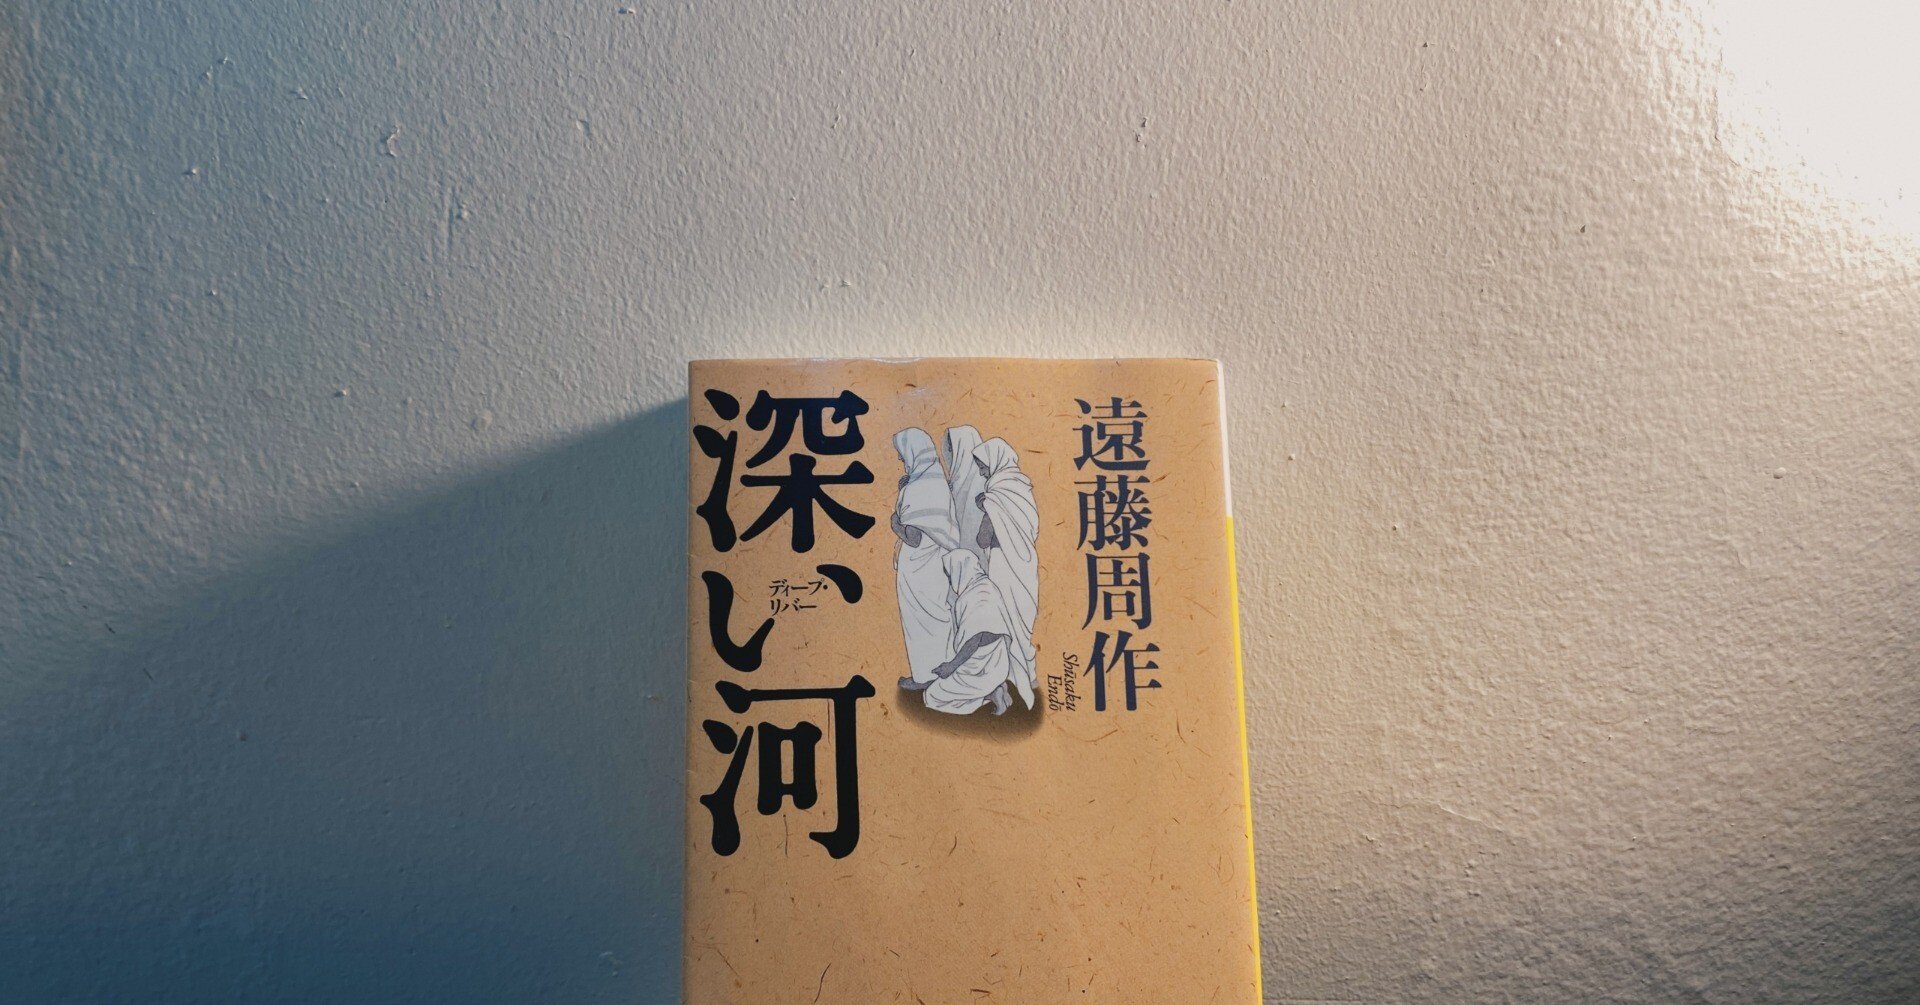 遠藤周作
Shūsaku
Endō
深い河
ディープ・
リバー